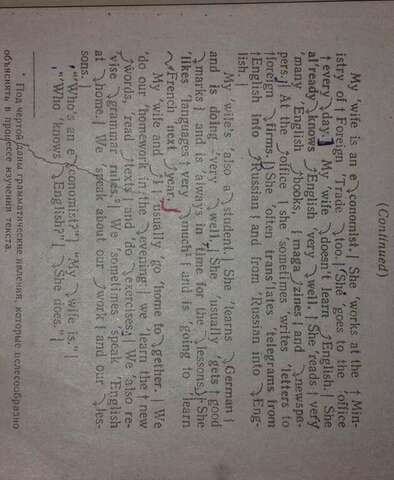 (Continued)
My ˈwife is an e͜conomist. | She ˈworks at the ↑Min-
istry of ↑Foreign ˈTrade ͜too. | She ˈgoes to the ˈoffice
↑every ͜day. | My ˈwife ͜doesn't learn ͜English. | She
alˈready ͜knows ͜English ˈvery ͜well. | She ˈreads | very
ˈmany ˈEnglish ͜books, | magaˈzines | and ͜newspa-
pers. | At the ͜office | she ˈsometimes writes ˈletters to
↑foreign ͜firms. | She ˈoften transˈlates ˈtelegrams from
↑English into ͜Russian | and from ˈRussian into ͜Eng-
lish. |
My ˈwife's ˈalso a ͜student. | She ˈlearns ͜German |
and is doing ˈvery ͜well. | She ˈusually ˈgets | good
͜marks | and is ˈalways in ͜time for the ͜lessons. | She
ˈlikes ˈlanguages ˈvery ͜much² | and is ˈgoing to ˈlearn
͜French next ˈyear. |
My ˈwife and ͜I | ˈusually go ˈhome toˈgether. | We
ˈdo our ˈhomework in the ͜evening: we ˈlearn the ↑new
͜words, ˈread ͜texts | and ˈdo ͜exercises. | We ˈalso re-
͜vise ͜grammar ͜rules.³ | We ˈsometimes ˈspeak ˈEnglish
at ͜home. | We ˈspeak about our ͜work | and our ͜les-
sons.
"ˈWho's an e͜conomist?" | "͜My ͜wife is." |
"ˈWho ˈknows ͜English?" | "͜She does." |
* Под чертой даны грамматические явления, которые целесообразно
объяснить в процессе изучения текста.